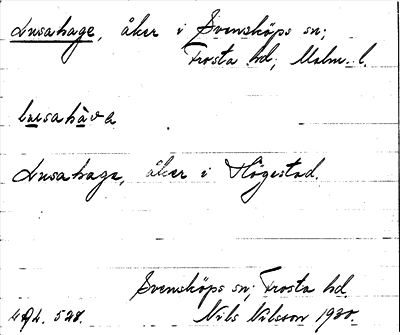 Lusahage, åker i Svensköps sn;
Frosta hd; Malm. l.
lusahàva
Lusahage, åker i Högestad.
Svensköps sn; Frosta hd.
Nils Nilsson 1930.